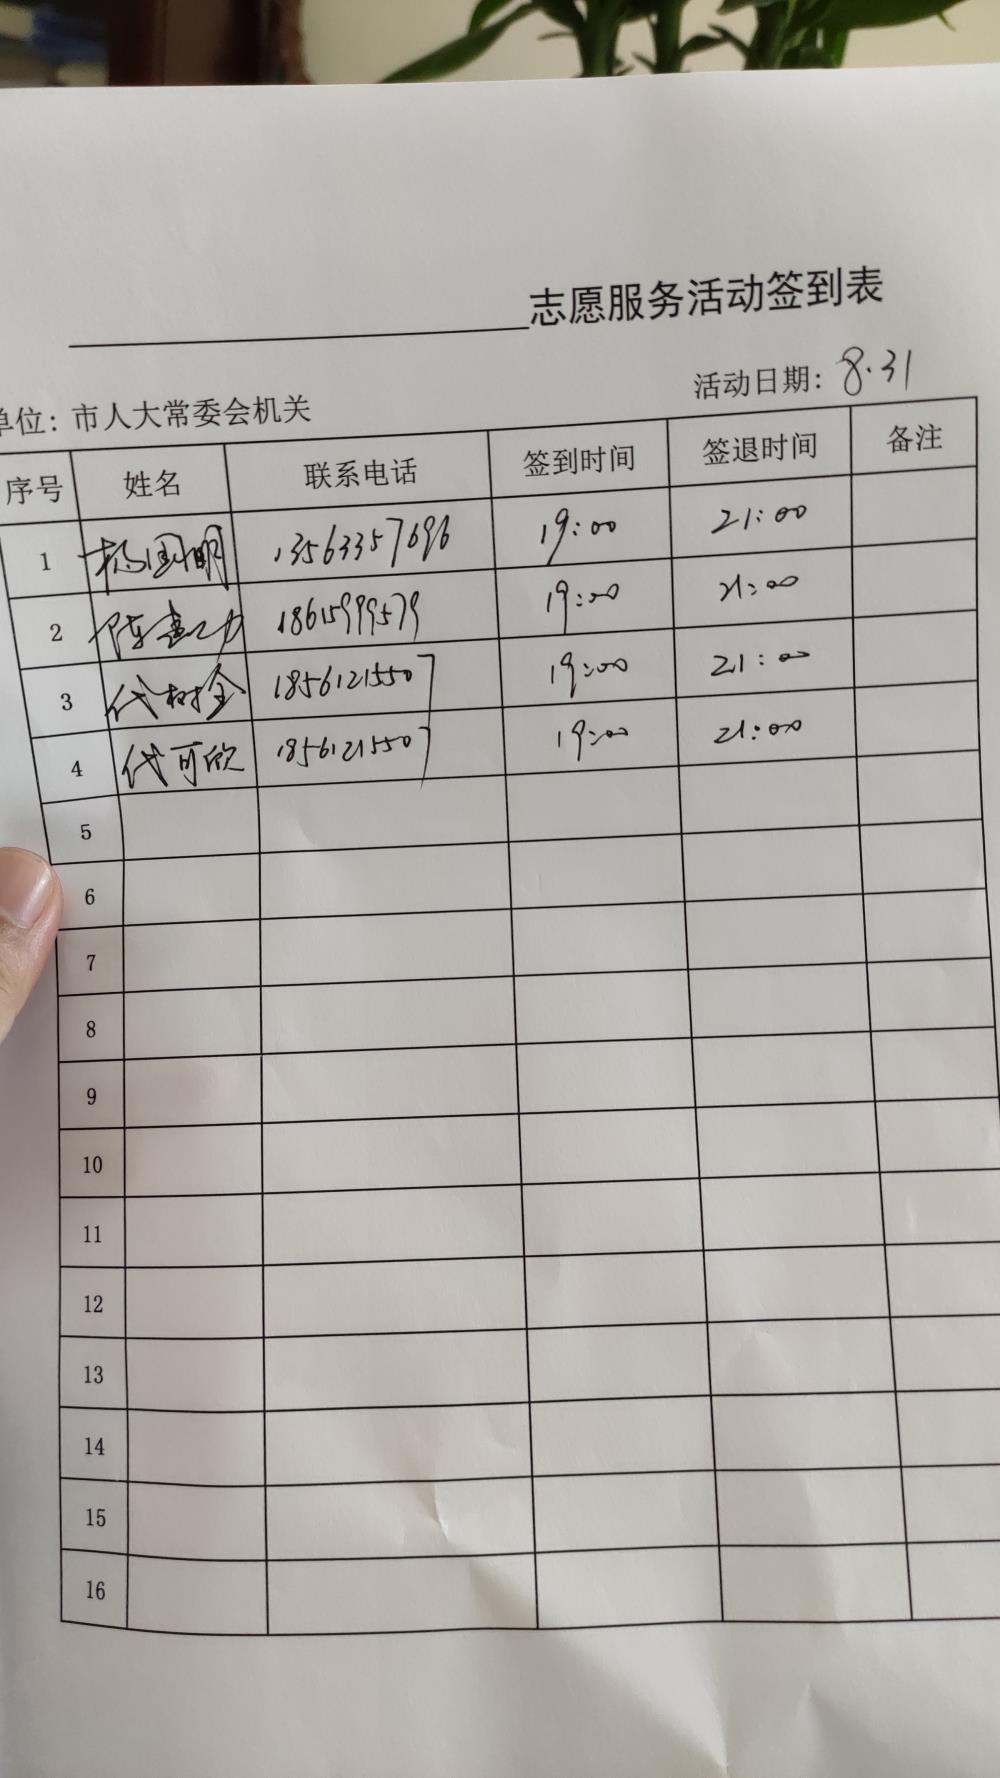 志愿服务活动签到表
单位：市人大常委会机关 活动日期：8.31
序号 姓名 联系电话 签到时间 签退时间 备注
1 杨国明 13563357696 19:00 21:00
2 陈 18615999579 19:00 21:00
3 代树全 18561215507 19:00 21:00
4 代可欣 18561215507 19:00 21:00
5
6
7
8
9
10
11
12
13
14
15
16